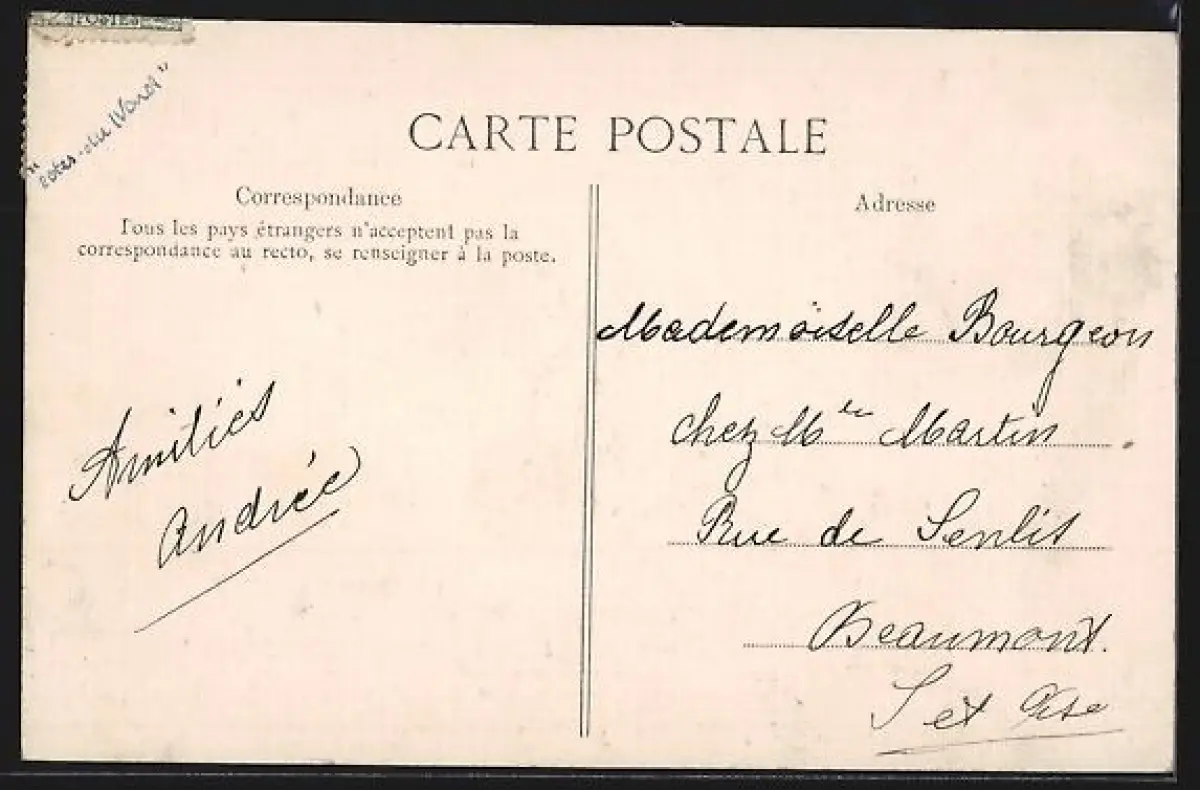 POSTES
"cotes-du-Nord"
CARTE POSTALE
Correspondance
Tous les pays étrangers n'acceptent pas la
correspondance au recto, se renseigner à la poste.
Amitiés
Andrée
Adresse
Mademoiselle Bourgeon
chez M<sup>elle</sup> Martin
Rue de Senlis
Beaumont.
S et Oise